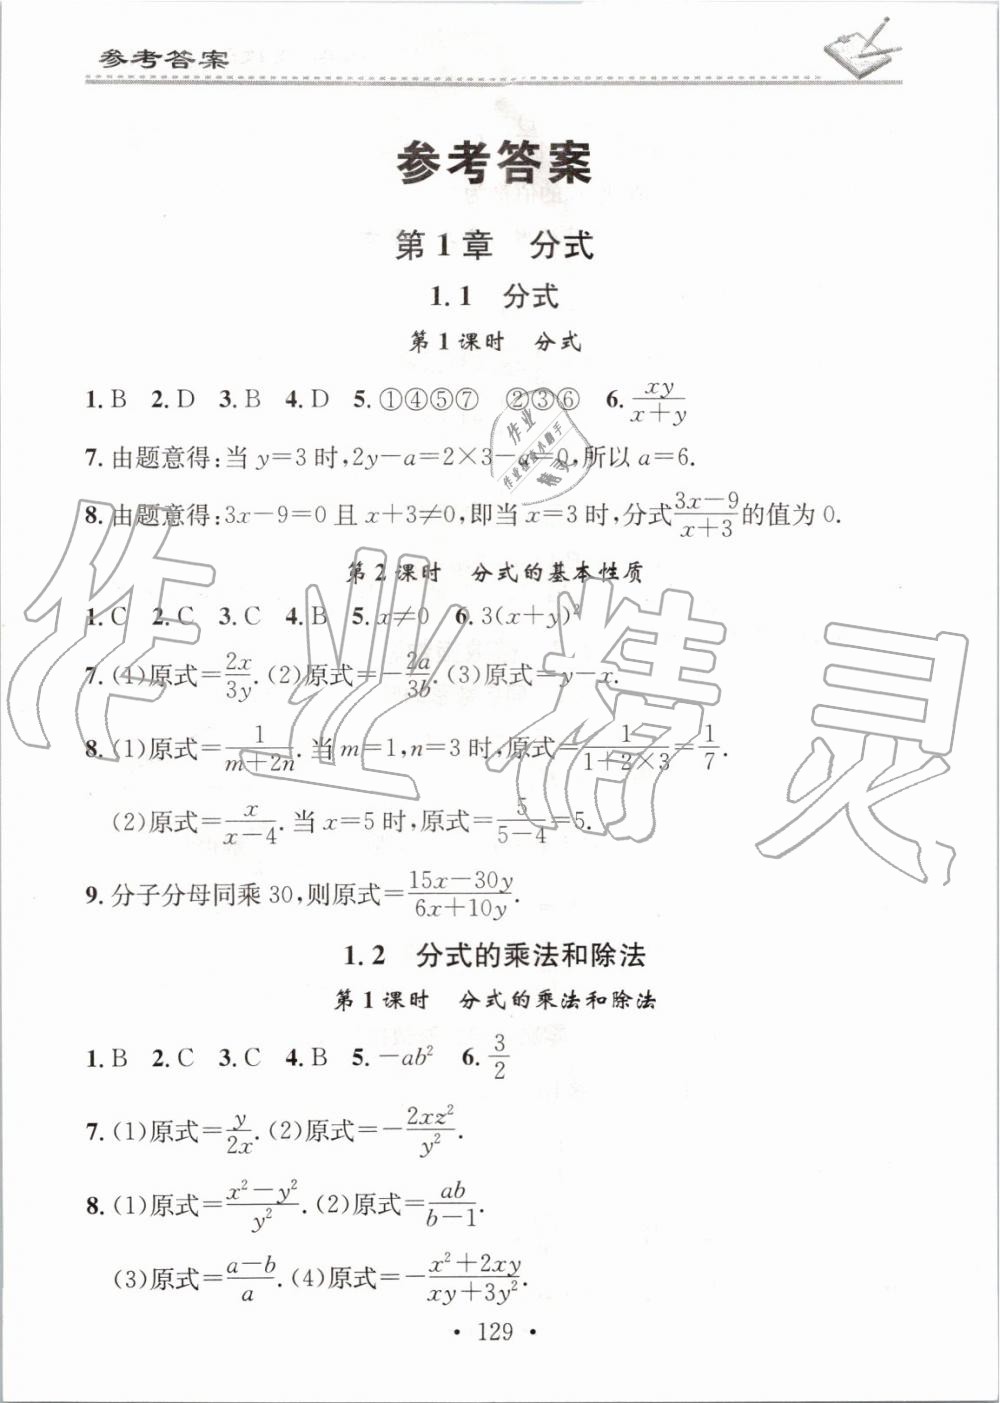 参考答案
参考答案
第1章 分式
1.1 分式
第1课时 分式
1. B 2. D 3. B 4. D 5. ①④⑤⑦ ②③⑥ 6. xy/(x+y)
7. 由题意得:当 y=3 时,2y-a=2×3-a=0,所以 a=6.
8. 由题意得:3x-9=0 且 x+3≠0,即当 x=3 时,分式(3x-9)/(x+3)的值为 0.
第2课时 分式的基本性质
1. C 2. C 3. C 4. B 5. x≠0 6. 3(x+y)²
7. (1)原式=2x/3y. (2)原式=-2a/3b. (3)原式=y-x.
8. (1)原式=1/(m+2n). 当 m=1,n=3 时,原式=1/(1+2×3)=1/7.
(2)原式=x/(x-4). 当 x=5 时,原式=5/(5-4)=5.
9. 分子分母同乘 30,则原式=(15x-30y)/(6x+10y).
1.2 分式的乘法和除法
第1课时 分式的乘法和除法
1. B 2. C 3. C 4. B 5. -ab² 6. 3/2
7. (1)原式=y/2x. (2)原式=-2xz²/y².
8. (1)原式=(x²-y²)/y². (2)原式=ab/(b-1).
(3)原式=(a-b)/a. (4)原式=-(x²+2xy)/(xy+3y²).
· 129 ·
作业精灵
作业
作业检查小助手
精灵